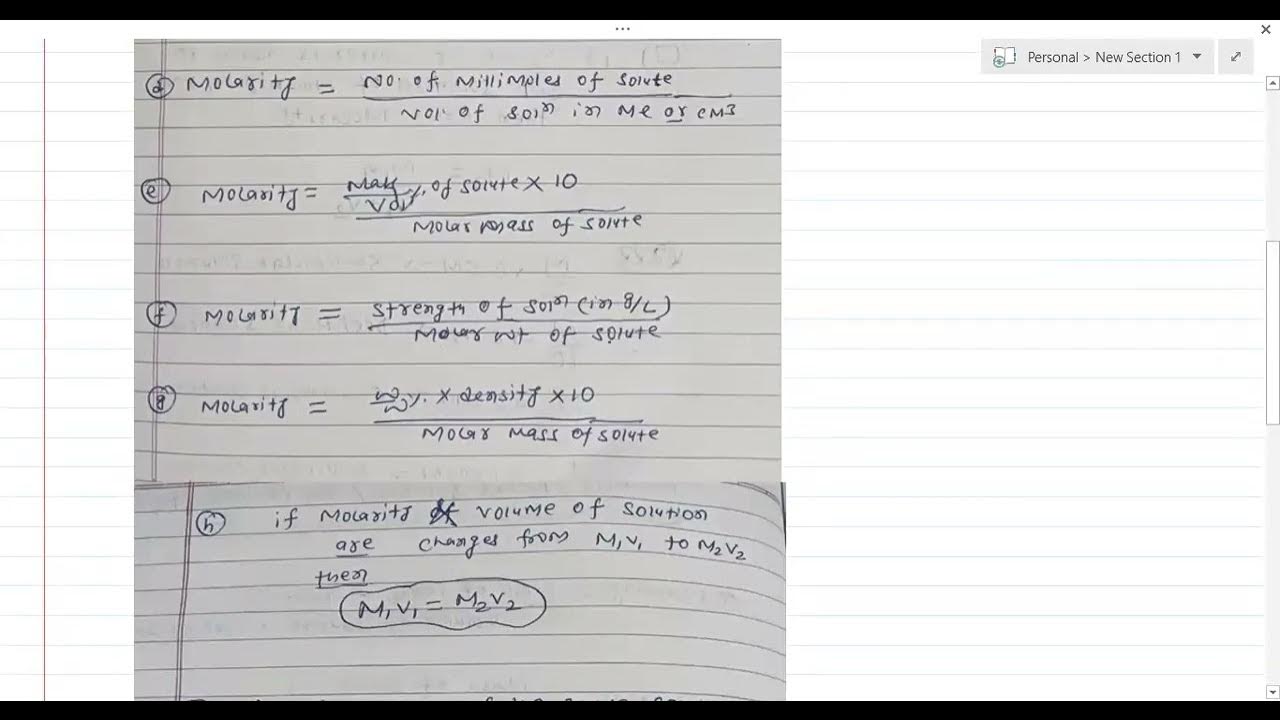 Personal > New Section 1
(d) Molarity = No. of Millimoles of solute
Vol. of soln in Ml or cm3
(e) Molarity = Mass/Vol % of solute × 10
Molar mass of solute
(f) Molarity = Strength of soln (in g/L)
Molar wt of solute
(g) Molarity = w/w % × density × 10
Molar mass of solute
(h) if Molarity & volume of solution
are changes from M₁V₁ to M₂V₂
then
M₁V₁ = M₂V₂